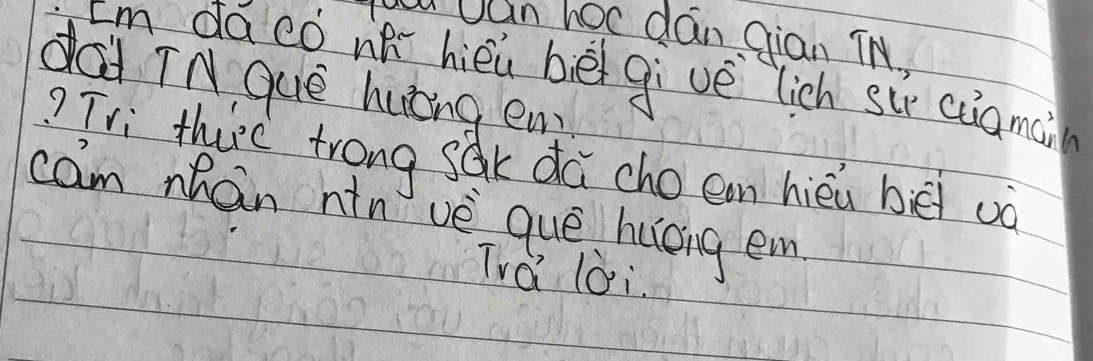 văn học dân gian TN.
. Em đã có nh~ hiểu biết gì về lịch sử của mảnh
đất TN quê hương em?
? Tri thức trong sgk đã cho em hiểu biết và
cảm nhận ntn về quê hương em.
Trả lời.